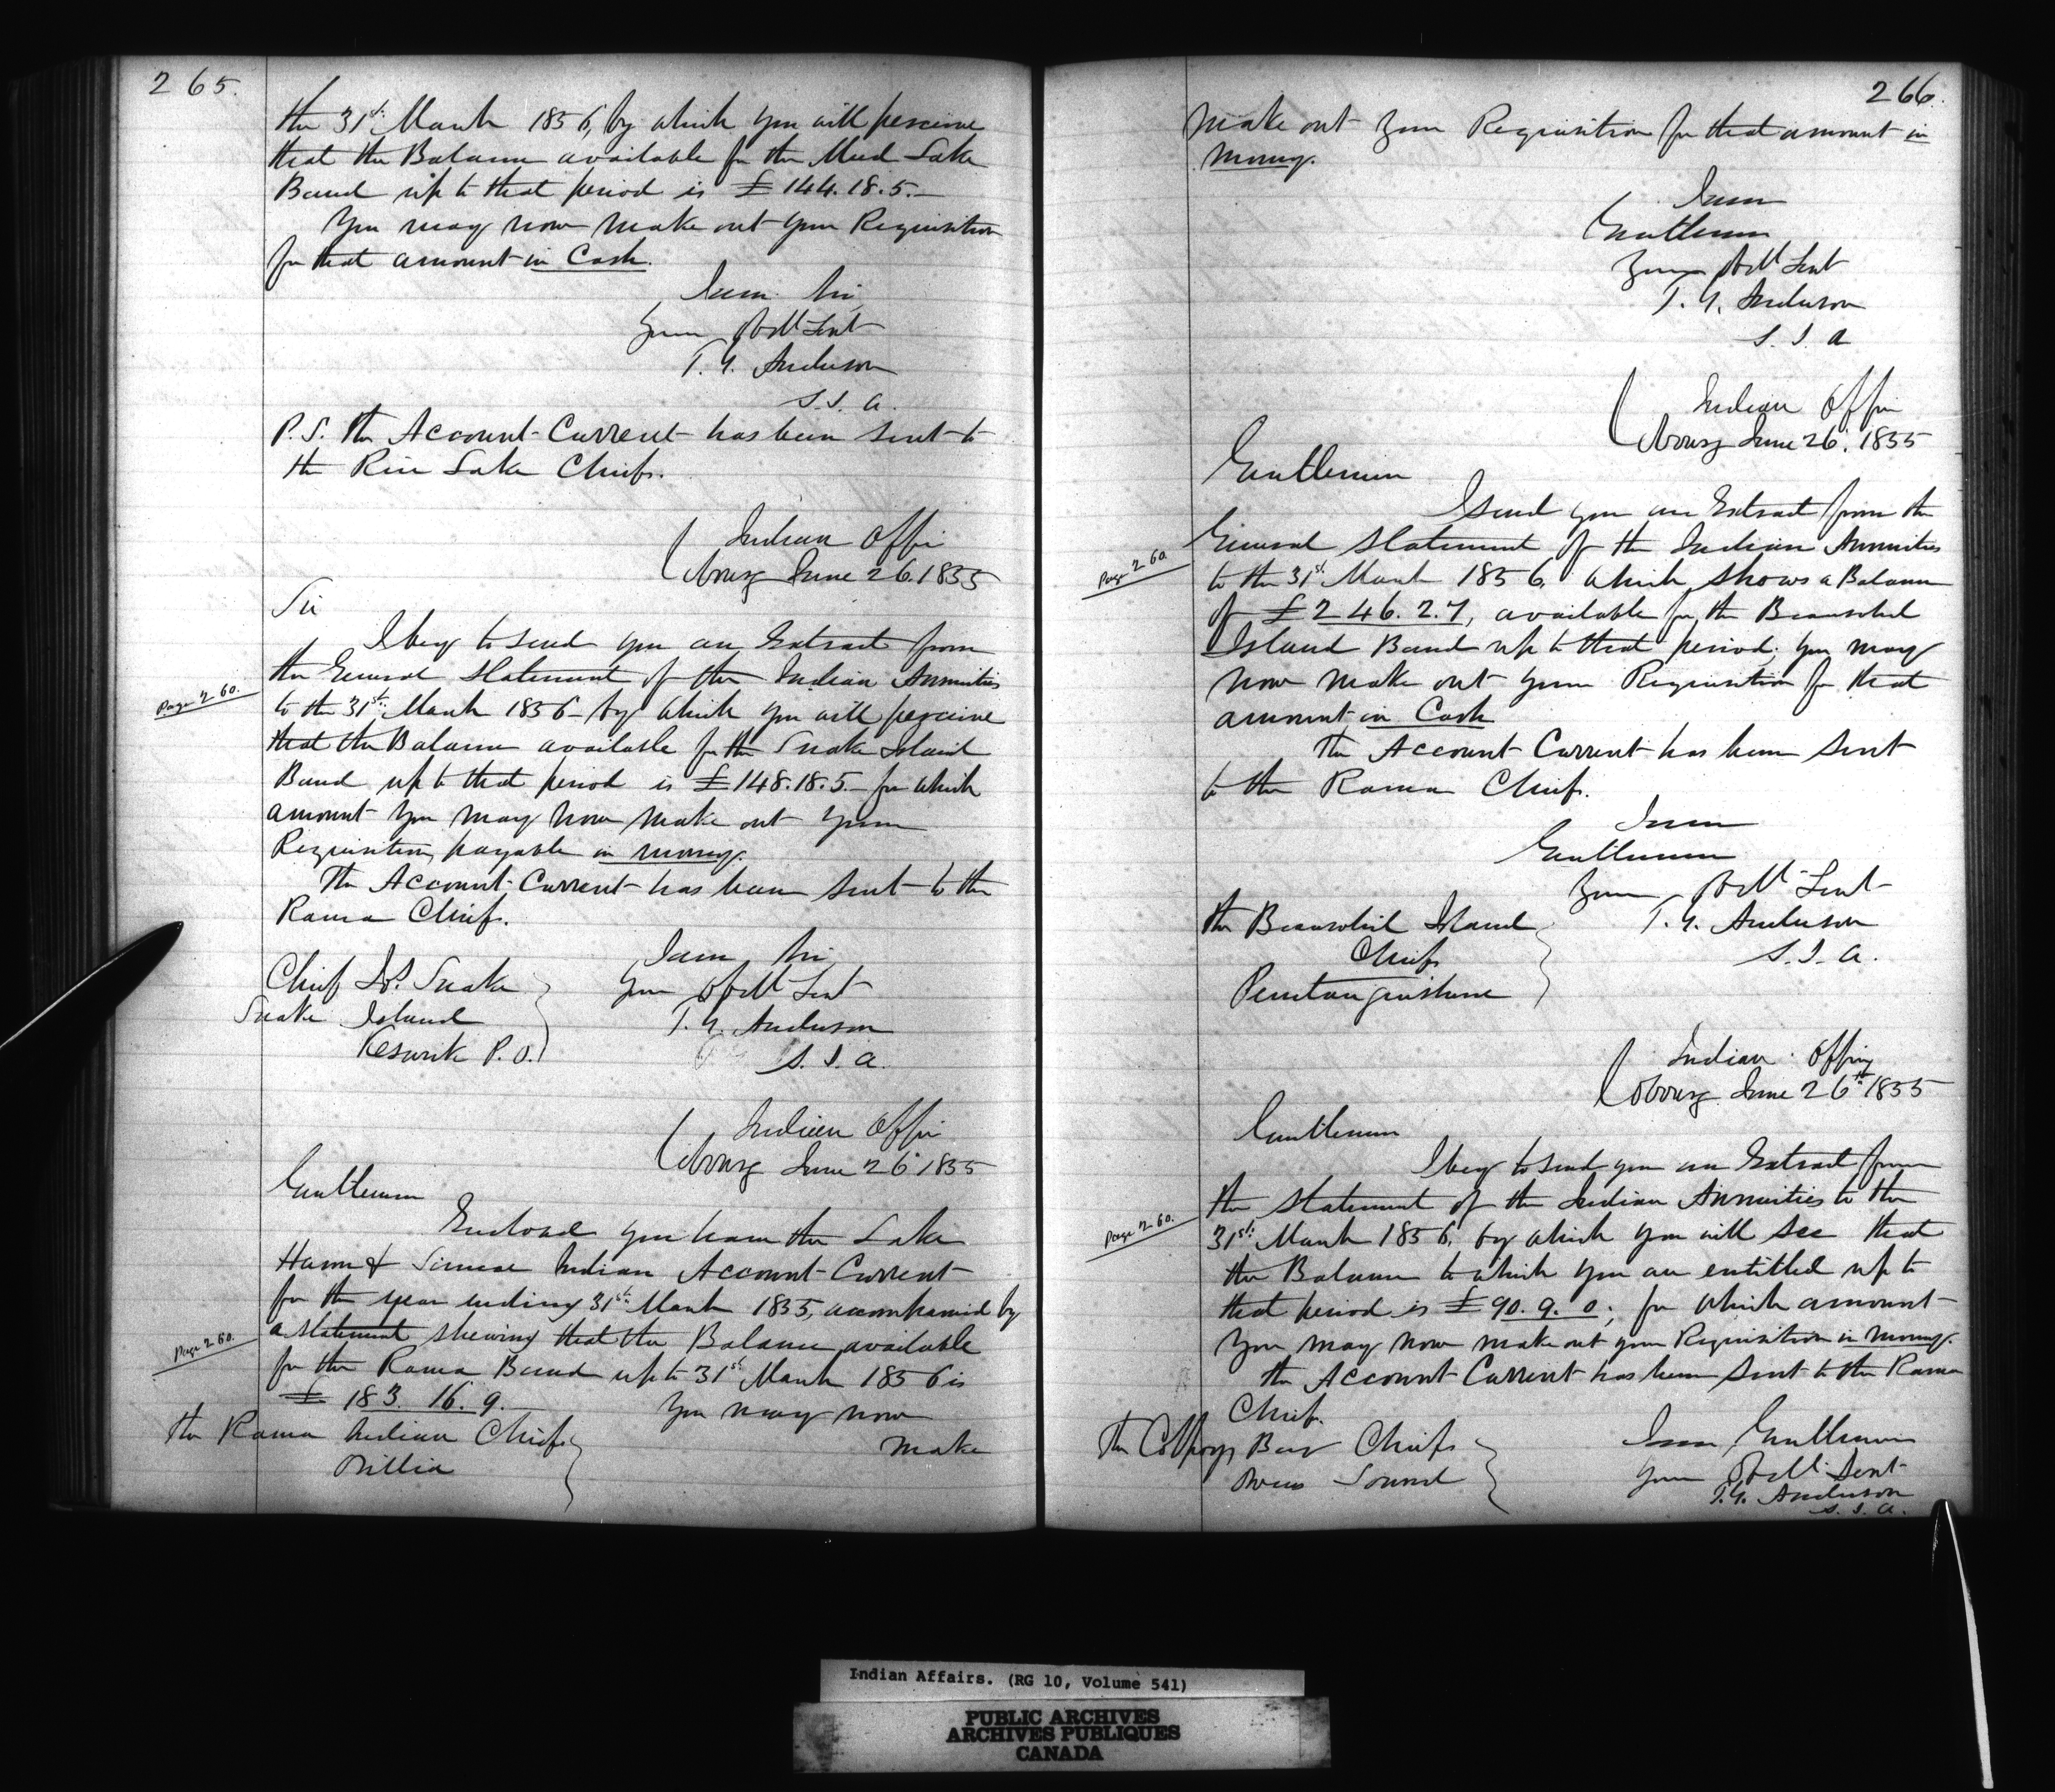 265.
the 31st March 1856, by which you will perceive
that the Balance available for the Mud Lake
Band up to that period is £144.18.5.—
You may now make out your Requisition
for that amount in Cash.
I am Sir
Your Obdt Servt
T. G. Anderson
S. I. A.
P.S. The Account Current has been sent to
the Rice Lake Chiefs.
Indian Office
Cobourg June 26. 1855
Sir
I beg to send you an Extract from
the General Statement of the Indian Annuities
Page 260.
to the 31st March 1856 by which you will perceive
that the Balance available for the Snake Island
Band up to that period is £148.18.5.— for which
amount you may now make out your
Requisition, payable in money.
The Account Current has been sent to the
Rama Chiefs.
I am Sir
Your Obdt Servt
T. G. Anderson
S. I. A.
Chief Snake
Snake Island
Keswick P.O.
Indian Office
Cobourg June 26 1855
Gentlemen
Enclosed you have the Lake
Huron & Simcoe Indian Account Current
for the year ending 31st March 1855, accompanied by
a statement shewing that the Balance available
Page 260.
for the Rama Band up to 31st March 1856 is
£ 183. 16. 9.
You may now
The Rama Indian Chiefs
Orillia
make
266.
make out your Requisition for that amount in
money.
I am
Gentlemen
Your Obdt Servt
T. G. Anderson
S. I. A
Indian Office
Cobourg June 26. 1855
Gentlemen
I send you an Extract from the
General Statement of the Indian Annuities
Page 260
to the 31st March 1856, which shows a Balance
of £246.2.7, available for the Beausoleil
Island Band up to that period; you may
now make out your Requisition for that
amount in Cash
The Account Current has been sent
to the Rama Chiefs.
I am
Gentlemen
Your Obdt Servt
T. G. Anderson
S. I. A.
The Beausoleil Island
Chiefs
Penetanguishene
Indian Office
Cobourg June 26th 1855
Gentlemen
I beg to send you an Extract from
the Statement of the Indian Annuities to the
Page 260.
31st March 1856, by which you will see that
the Balance to which you are entitled up to
that period is £90. 9. 0; for which amount
you may now make out your Requisition in money.
The Account Current has been sent to the Rama
Chiefs.
The Colpoys Bay Chiefs
Owens Sound
I am Gentlemen
Your Obdt Servt
T. G. Anderson
S. I. A.
Indian Affairs. (RG 10, Volume 541)
PUBLIC ARCHIVES
ARCHIVES PUBLIQUES
CANADA